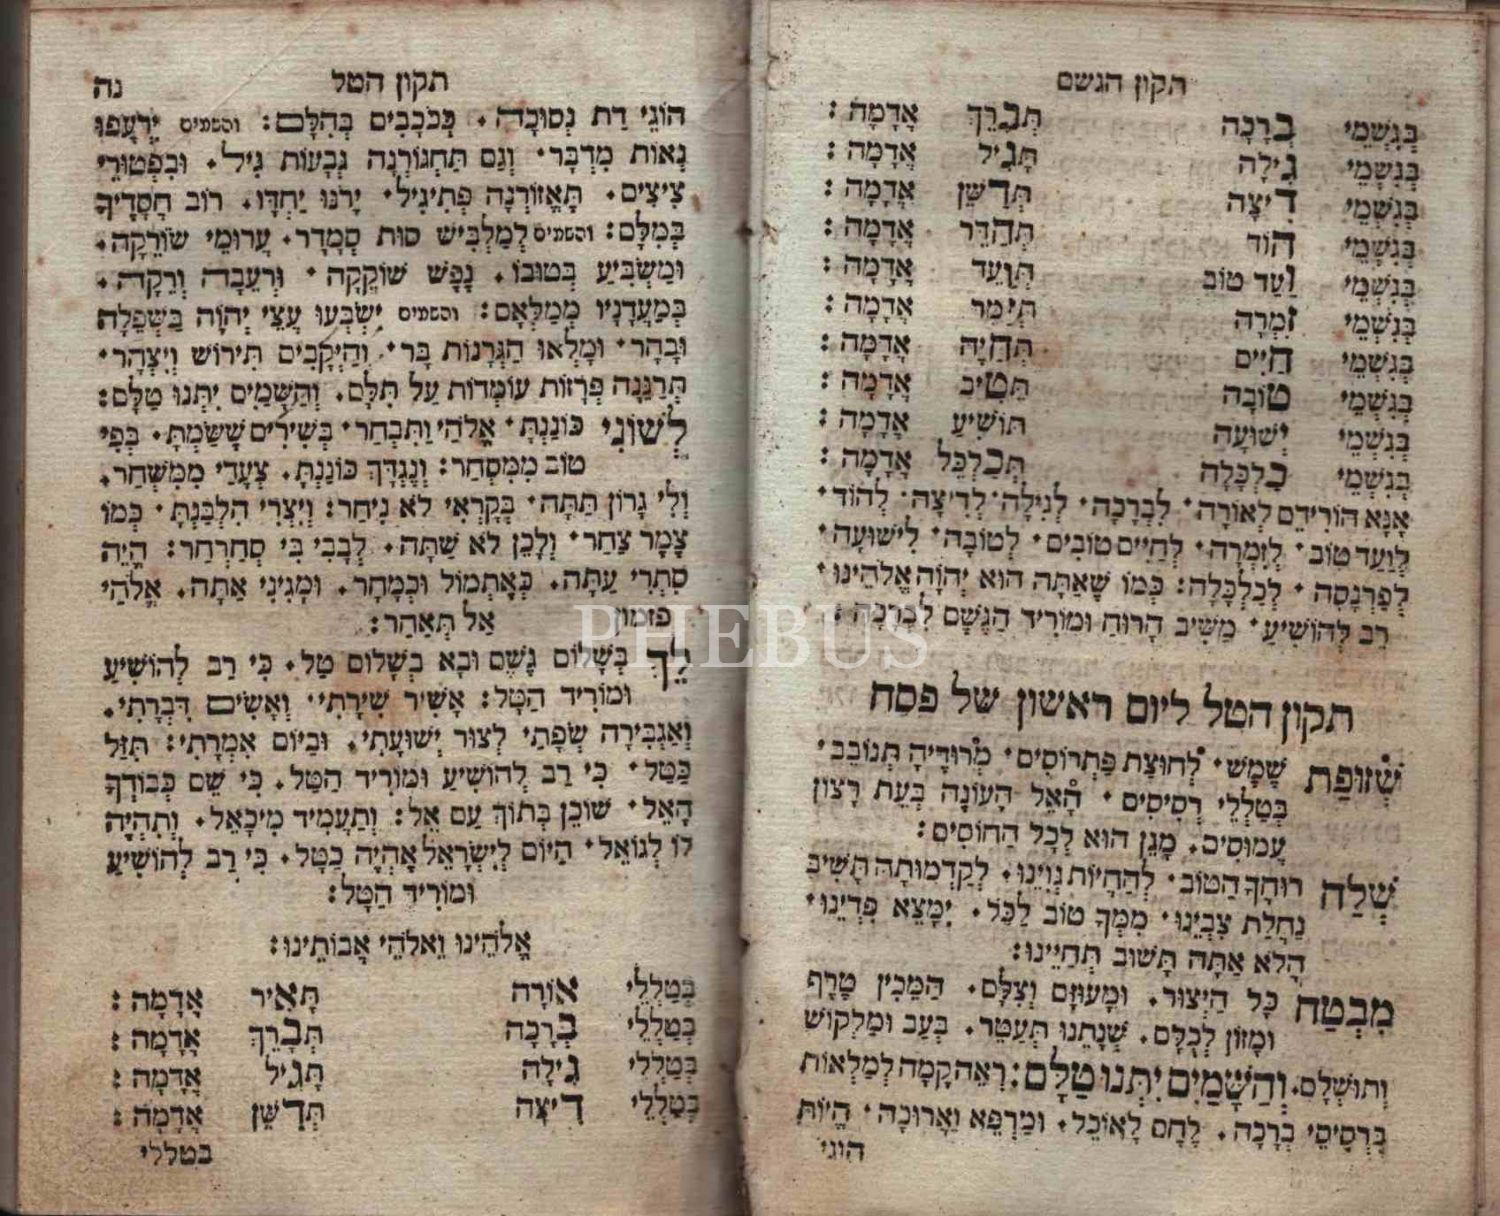 תקון הגשם
בְּגִשְׁמֵי בְרָכָה תְּבָרֵךְ אֲדָמָה :
בְּגִשְׁמֵי גִילָה תָּגִיל אֲדָמָה :
בְּגִשְׁמֵי דִיצָה תְּדַשֵּׁן אֲדָמָה :
בְּגִשְׁמֵי הוֹד תְּהַדֵּר אֲדָמָה :
בְּגִשְׁמֵי וַעַד טוֹב תְּוַעֵד אֲדָמָה :
בְּגִשְׁמֵי זִמְרָה תְּזַמֵּר אֲדָמָה :
בְּגִשְׁמֵי חַיִּים תְּחַיֶּה אֲדָמָה :
בְּגִשְׁמֵי טוֹבָה תֵּטִיב אֲדָמָה :
בְּגִשְׁמֵי יְשׁוּעָה תּוֹשִׁיעַ אֲדָמָה :
בְּגִשְׁמֵי כַלְכָּלָה תְּכַלְכֵּל אֲדָמָה :
אָנָּא הוֹרִידֵם לְאוֹרָה · לִבְרָכָה · לְגִילָה · לְדִיצָה · לְהוֹד ·
לְוַעַד טוֹב · לְזִמְרָה · לְחַיִּים טוֹבִים · לְטוֹבָה · לִישׁוּעָה ·
לְפַרְנָסָה · לְכַלְכָּלָה : כְּמוֹ שֶׁאַתָּה הוּא יְהֹוָה אֱלֹהֵינוּ ·
רַב לְהוֹשִׁיעַ · מַשִּׁיב הָרוּחַ וּמוֹרִיד הַגֶּשֶׁם לִבְרָכָה :
תקון הטל ליום ראשון של פסח
שְׁזוּפַת שֶׁמֶשׁ · לְחוּצַת פַּתְרוּסִים · מְרוּדֶיהָ תְּנוֹבֵב ·
בְּטַלְלֵי רְסִיסִים · הָאֵל הָעוֹנֶה בְּעֵת רָצוֹן
עֲמוּסִים · מָגֵן הוּא לְכָל הַחוֹסִים :
שְׁלַח רוּחֲךָ הַטּוֹב · לְהַחֲיוֹת גְּוִיֵּנוּ · לְקַדְמוּתָהּ תָּשִׁיב
נַחֲלַת צִבְיֵנוּ · מִמְּךָ טוֹב לַכֹּל · יִמָּצֵא פִּדְיֵנוּ ·
הֲלֹא אַתָּה תָּשׁוּב תְּחַיֵּינוּ :
מִבְטַח כָּל הַיְצוּר · וּמָעוּזָּם וְצִלָּם · הַמֵּכִין טֶרֶף
וּמָזוֹן לְכֻלָּם · שְׁנָתֵנוּ תְּעַטֵּר · בְּעַב וּמַלְקוֹשׁ
וְתוּשְׁלַם · וְהַשָּׁמַיִם יִתְּנוּ טַלָּם : רְאֵה קָמָה לְמַלְאוֹת
בִּרְסִיסֵי בְרָכָה · לֶחֶם לָאוֹכֵל · וּמַרְפֵּא וַאֲרוּכָה · הֱיוֹת
הוגי
תקון הטל נה
הוֹגֵי דַת נְסוּכָה · כְּכֹכָבִים בְּהִלָּם : והשמים יִרְעֲפוּ
נְאוֹת מִדְבָּר · וְגַם תַּחְגּוֹרְנָה גְּבָעוֹת גִּיל · וּכִפְטוּרֵי
צִיצִים · תֶּאֱזוֹרְנָה פְּתִיגִיל · יָרֹנּוּ יַחְדָּו · רוֹב חֲסָדֶיךָ
בְּמִלָּם : והשמים לְמַלְבִּישׁ סוּת סְמָדַר · עֲרוּמֵי שׂוֹרֵקָה ·
וּמַשְׂבִּיעַ בְּטוּבוֹ · נֶפֶשׁ שׁוֹקֵקָה · וּרְעֵבָה וְרֵקָה ·
בְּמַעֲדַנָּיו מְמַלְּאָם : והשמים יִשְׂבְּעוּ עֲצֵי יְהֹוָה בַּשְּׁפֵלָה
וּבָהָר · וּמָלְאוּ הַגֳּרָנוֹת בָּר · וְהַיְקָבִים תִּירוֹשׁ וְיִצְהָר ·
תְּרַנֵּנָה פְּרָזוֹת עוֹמְדוֹת עַל תִּלָּם · וְהַשָּׁמַיִם יִתְּנוּ טַלָּם :
לְשׁוֹנִי כּוֹנַנְתָּ · אֱלֹהַי וַתִּבְחַר · בְּשִׁירִים שֶׁשַּׂמְתָּ · בְּפִי
טוֹב מִמִּסְחַר : וְנֶגְדְּךָ כּוֹנַנְתָּ · צְעָדַי מִמִּשְׁחַר ·
וְלִי גָרוֹן תַּתָּה · בְּקָרְאִי לֹא נִיחַר : וְיִצְרִי הִלְבַּנְתָּ · כְּמוֹ
צֶמֶר צַחַר · וְלָכֵן לֹא שַׁתָּה · לְבָבִי בִּי סְחַרְחַר : הֱיֵה
סִתְרִי עַתָּה · כְּאֶתְמוֹל וּכְמָחָר · וּמָגִינִי אַתָּה · אֱלֹהַי
פזמון אַל תְּאַחַר :
לֵךְ בְּשָׁלוֹם גֶּשֶׁם וּבֹא בְשָׁלוֹם טַל · כִּי רַב לְהוֹשִׁיעַ
וּמוֹרִיד הַטָּל : אָשִׁיר שִׁירָתִי · וְאָשִׂים דִּבְרָתִי ·
וְאַגְבִּירָה שְׂפָתַי לְצוּר יְשׁוּעָתִי · וּבַיּוֹם אִמְרָתִי : תִּזַּל
כַּטַּל · כִּי רַב לְהוֹשִׁיעַ וּמוֹרִיד הַטַּל · כִּי שֵׁם כְּבוֹדְךָ
הָאֵל · שׁוֹכֵן בְּתוֹךְ עַם אֵל : וְתַעֲמִיד מִיכָאֵל · וְתִהְיֶה
לוֹ לְגוֹאֵל · הַיּוֹם לְיִשְׂרָאֵל אֶהְיֶה כַטָּל · כִּי רַב לְהוֹשִׁיעַ
וּמוֹרִיד הַטָּל :
אֱלֹהֵינוּ וֵאלֹהֵי אֲבוֹתֵינוּ :
בְּטַלְלֵי אוֹרָה תָּאִיר אֲדָמָה :
בְּטַלְלֵי בְרָכָה תְּבָרֵךְ אֲדָמָה :
בְּטַלְלֵי גִילָה תָּגִיל אֲדָמָה :
בְּטַלְלֵי דִיצָה תְּדַשֵּׁן אֲדָמָה :
בטללי
PHEBUS